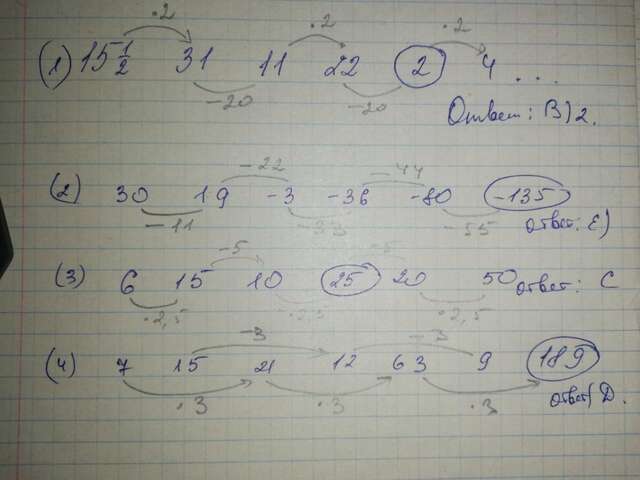 ·2 ·2 ·2
(1) 15 1/2 31 11 22 2 4 ...
-20 -20
Ответ: B) 2.
-22 -44
(2) 30 19 -3 -36 -80 -135
-11 -33 -55
ответ: E)
-5 -5
(3) 6 15 10 25 20 50 ответ: C
·2,5 ·2,5 ·2,5
-3 -3
(4) 7 15 21 12 63 9 189
·3 ·3 ·3
ответ D.